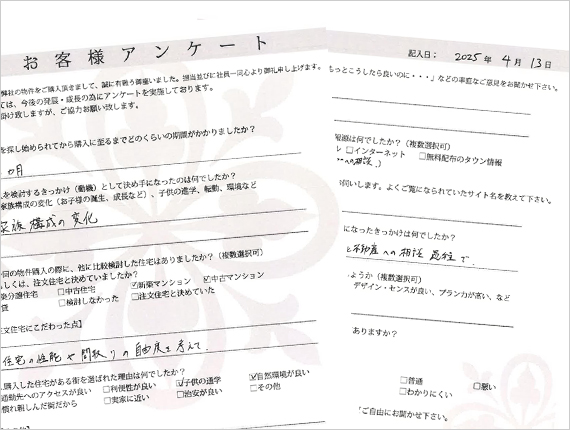 お客様アンケート
弊社の物件をご購入頂きまして、誠に有難う御座いました。担当並びに社員一同心より御礼申し上げます。
では、今後の発展・成長の為にアンケートを実施しております。
掛け致しますが、ご協力お願い致します。
を探し始められてから購入に至るまでどのくらいの期間がかかりましたか?
月
を検討するきっかけ(動機)として決め手になったのは何でしたか?
家族構成の変化(お子様の誕生、成長など)、子供の進学、転勤、環境など
家族構成の変化
回の物件購入の際に、他に比較検討した住宅はありましたか?(複数選択可)
しくは、注文住宅と決めていましたか?
分譲住宅 □中古住宅 ☑新築マンション ☑中古マンション
貸 □検討しなかった □注文住宅と決めていた
文住宅にこだわった点】
住宅の性能や間取りの自由度を考えて
購入した住宅がある街を選ばれた理由は何でしたか?
通勤先へのアクセスが良い □利便性が良い ☑子供の通学 ☑自然環境が良い
慣れ親しんだ街だから □実家に近い □治安が良い □その他
記入日: 2025年 4月 13日
もっとこうしたら良いのに・・・」などの率直なご意見をお聞かせ下さい。
報源は何でしたか?(複数選択可)
□インターネット □無料配布のタウン情報
への相談)
伺いします。よくご覧になられていたサイト名を教えて下さい。
になったきっかけは何でしたか?
と不動産への相談 会社で
ょうか(複数選択可)
デザイン・センスが良い、プラン力が高い、など
ありますか?
□普通 □悪い
□わかりにくい
ご自由にお聞かせ下さい。